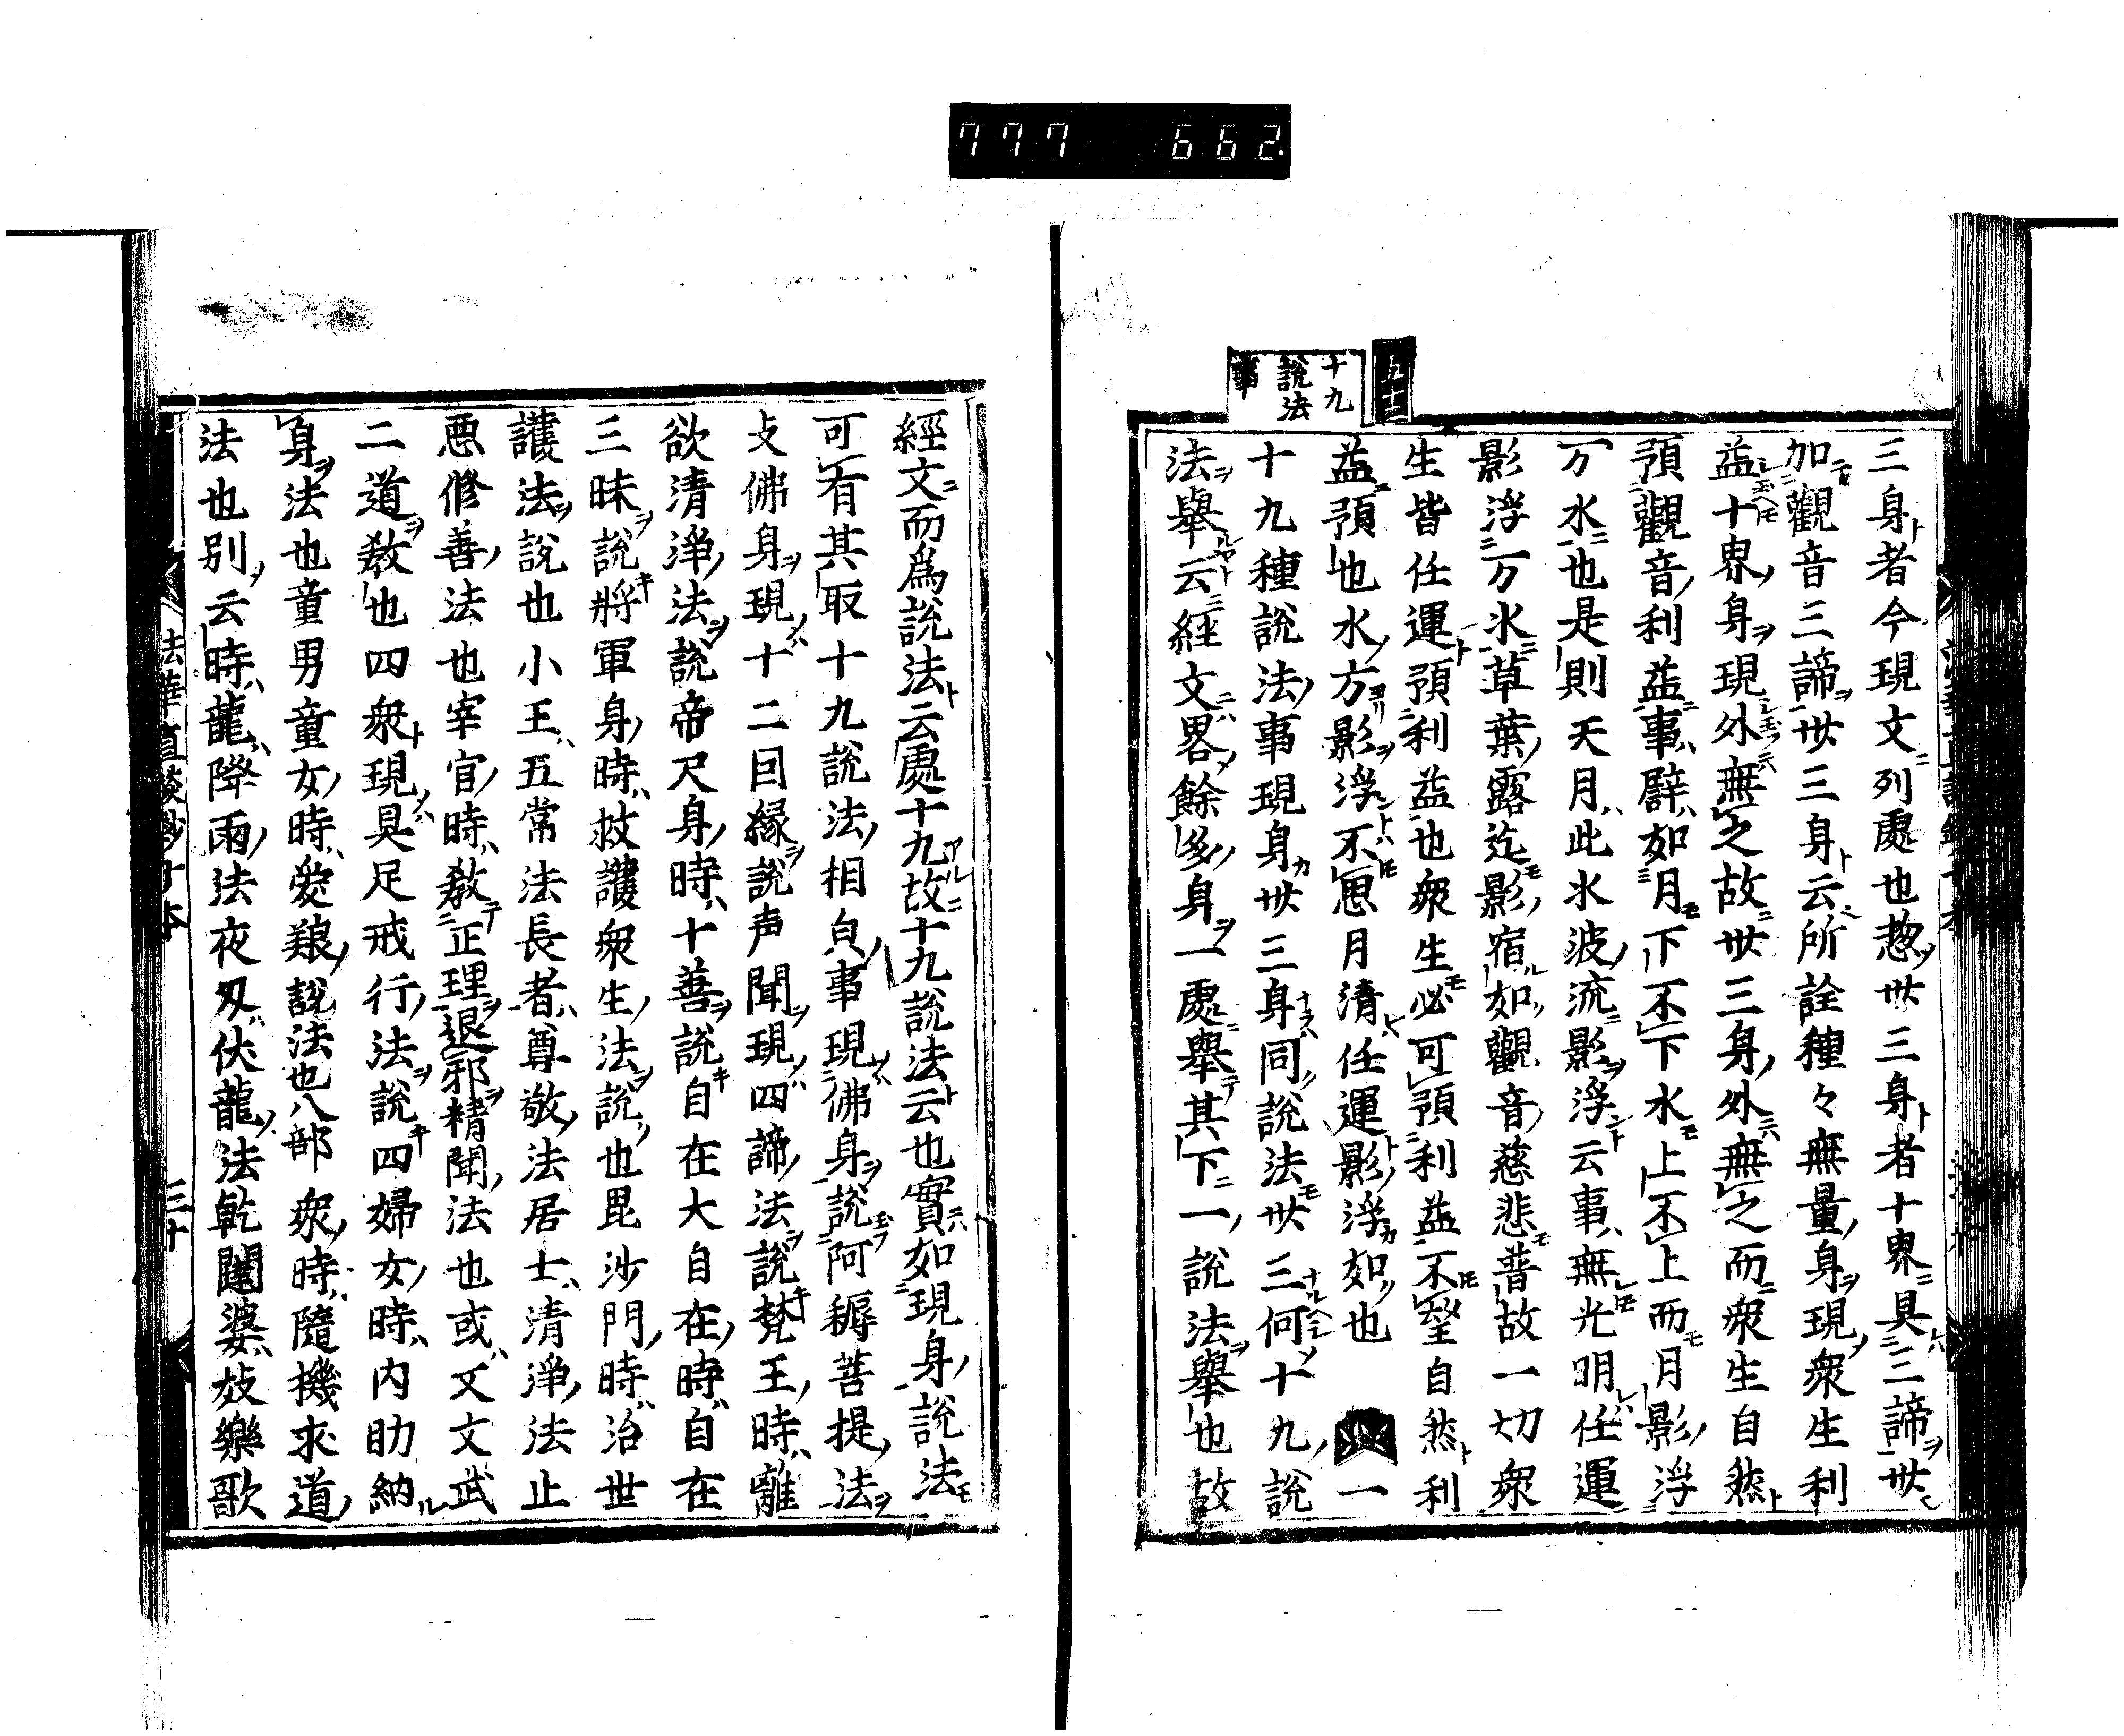 777 662
十九
說法
事
三身者今現文列處也惣丗三身者十界具三諦丗
加觀音三諦丗三身云所詮種々無量身現衆生利
益十界身現外無之故丗三身外無之而衆生自然
預觀音利益事譬如月下不下水上不上而月影浮
万水也是則天月此水波流影浮云事無光明任運
影浮万水草葉露迄影宿如觀音慈悲普故一切衆
生皆任運預利益也衆生必可預利益不望自然利
益預也水方影浮不思月清任運影浮如也 一
十九種說法事現身丗三身同說法丗三何十九說
法舉云經文畧餘多身一處舉其下一說法舉也故
經文而爲說法云處十九故十九說法云也實如現身說法
可有其取十九說法相貞事現佛身說阿耨菩提法
支佛身現十二因縁說声聞現四諦法說梵王時離
欲清淨法說帝尺身時十善說自在大自在時自在
三昧說將軍身時救護衆生法說也毘沙門時治世
護法說也小王五常法長者尊敬法居士清淨法止
悪修善法也宰官時教正理退邪精聞法也或文文武
二道教也四衆現具足戒行法說四婦女時内助納
身法也童男童女時愛艱說法也八部衆時隨機求道
法也別云時龍降雨法夜叉伏龍法乾闥婆妓樂歌
法華直談鈔十本